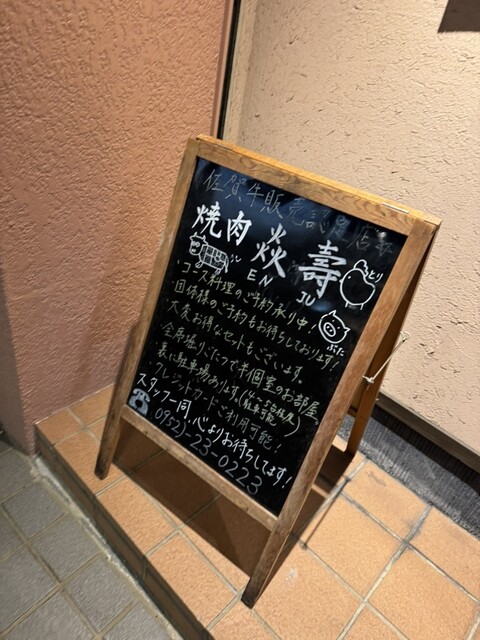 佐賀牛販売認定店
焼肉 焱 壽
EN JU
ウシ
とり
ぶた
・コース料理のご予約承り中!
団体様のご予約もお待ちしております!
・大変お得なセットもございます。
・全席掘りごたつで半個室のお部屋。
・裏に駐車場あります。(4〜5台程度駐車可能)
・クレジットカードご利用可能!
スタッフ一同、心よりお待ちしてます!
☎0952-23-0223